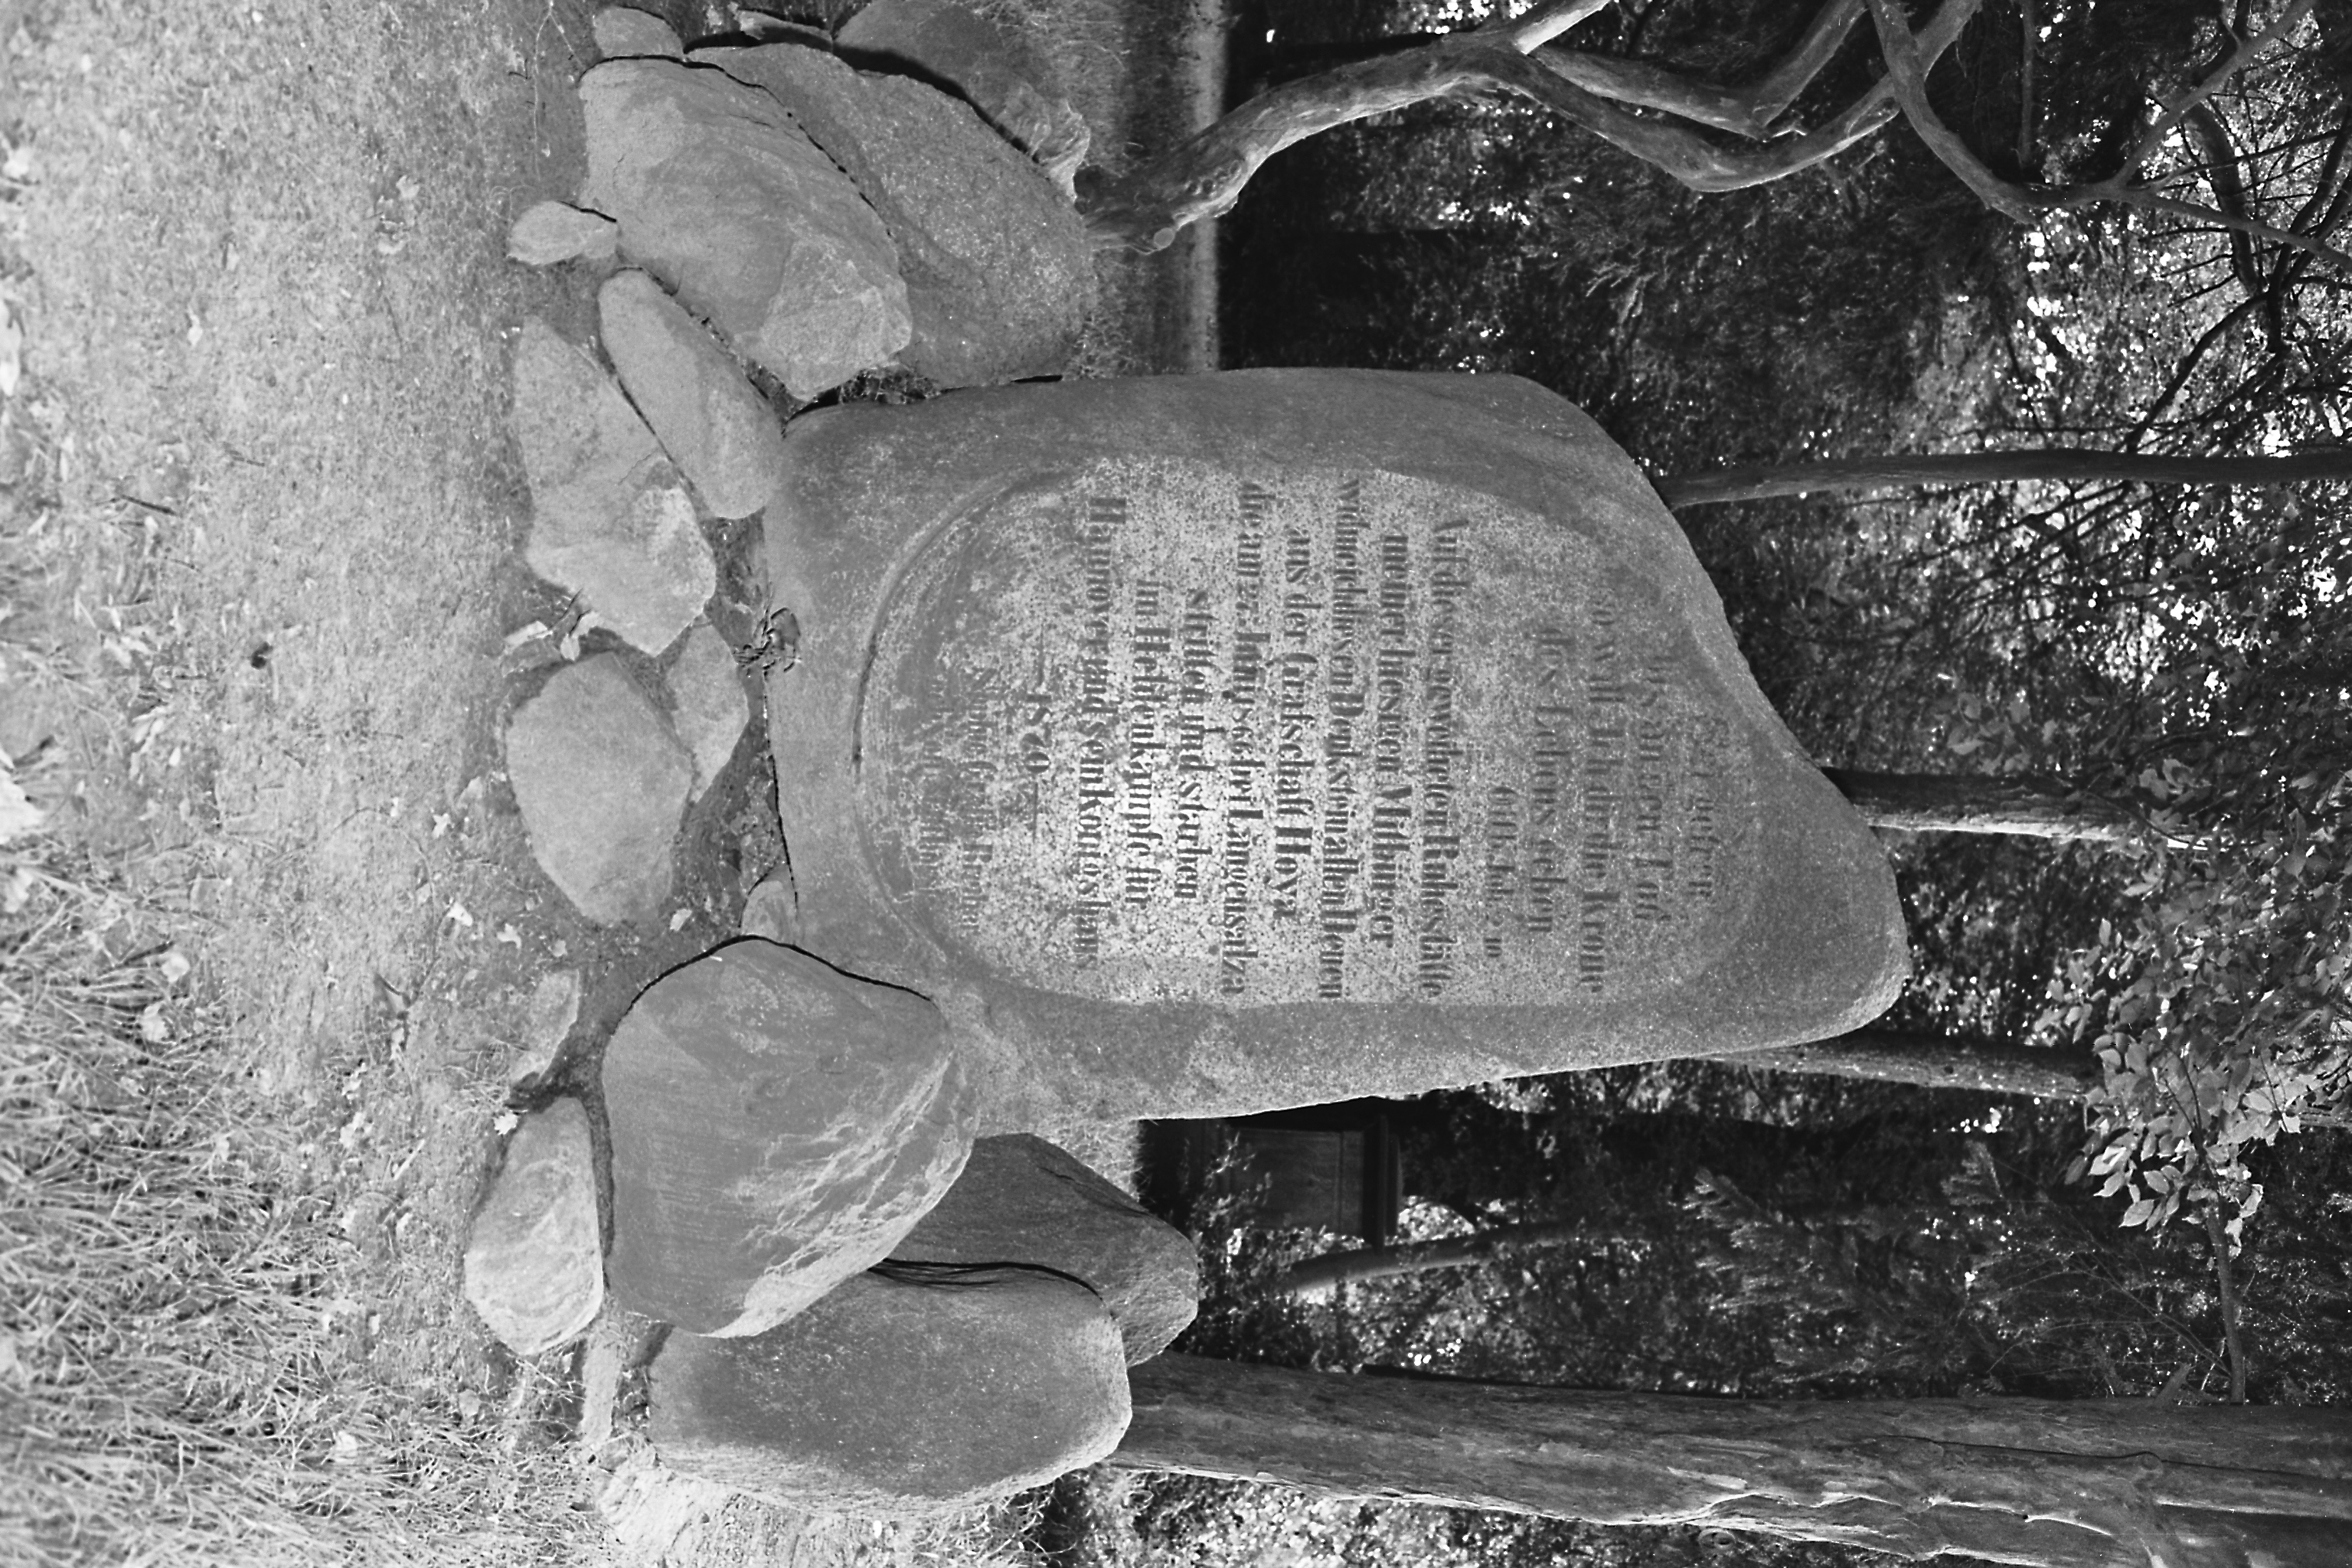 Sei getreu
bis an den Tod
so will ich dir die Krone
des Lebens geben
Offb. Joh. 2.
Auf dieser geweihten Ruhestätte
meiner hiesigen Mitbürger
widme ich diesen Denkstein allen Denen
aus der Grafschaft Hoya
die am 27. Juny 1866 bei Langensalza
stritten und starben
im Heldenkampfe für
Hannover und sein Königshaus
1870